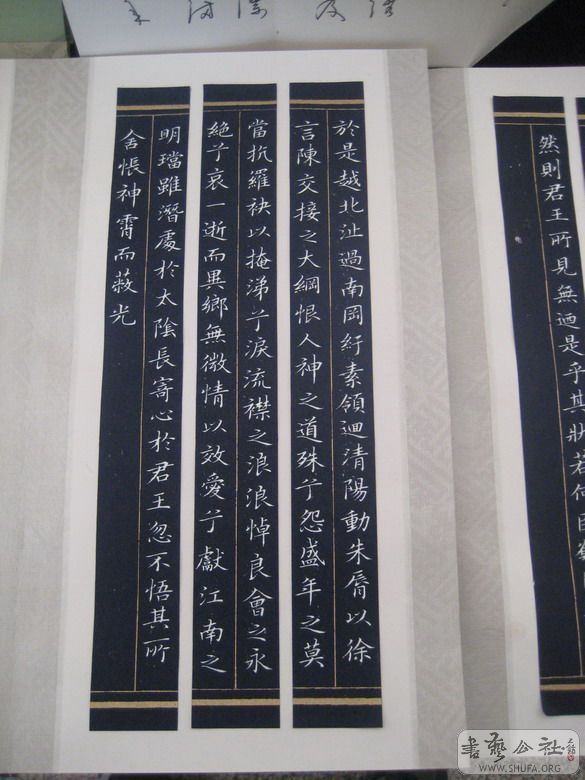 然則君王所見無迺是乎其狀若何臣
於是越北沚過南岡紆素領迴清陽動朱脣以徐
言陳交接之大綱恨人神之道殊兮怨盛年之莫
當抗羅袂以掩涕兮淚流襟之浪浪悼良會之永
絕兮哀一逝而異鄉無微情以效愛兮獻江南之
明璫雖潛處於太陰長寄心於君王忽不悟其所
舍悵神霄而蔽光
書藝公社
WWW.SHUFA.ORG